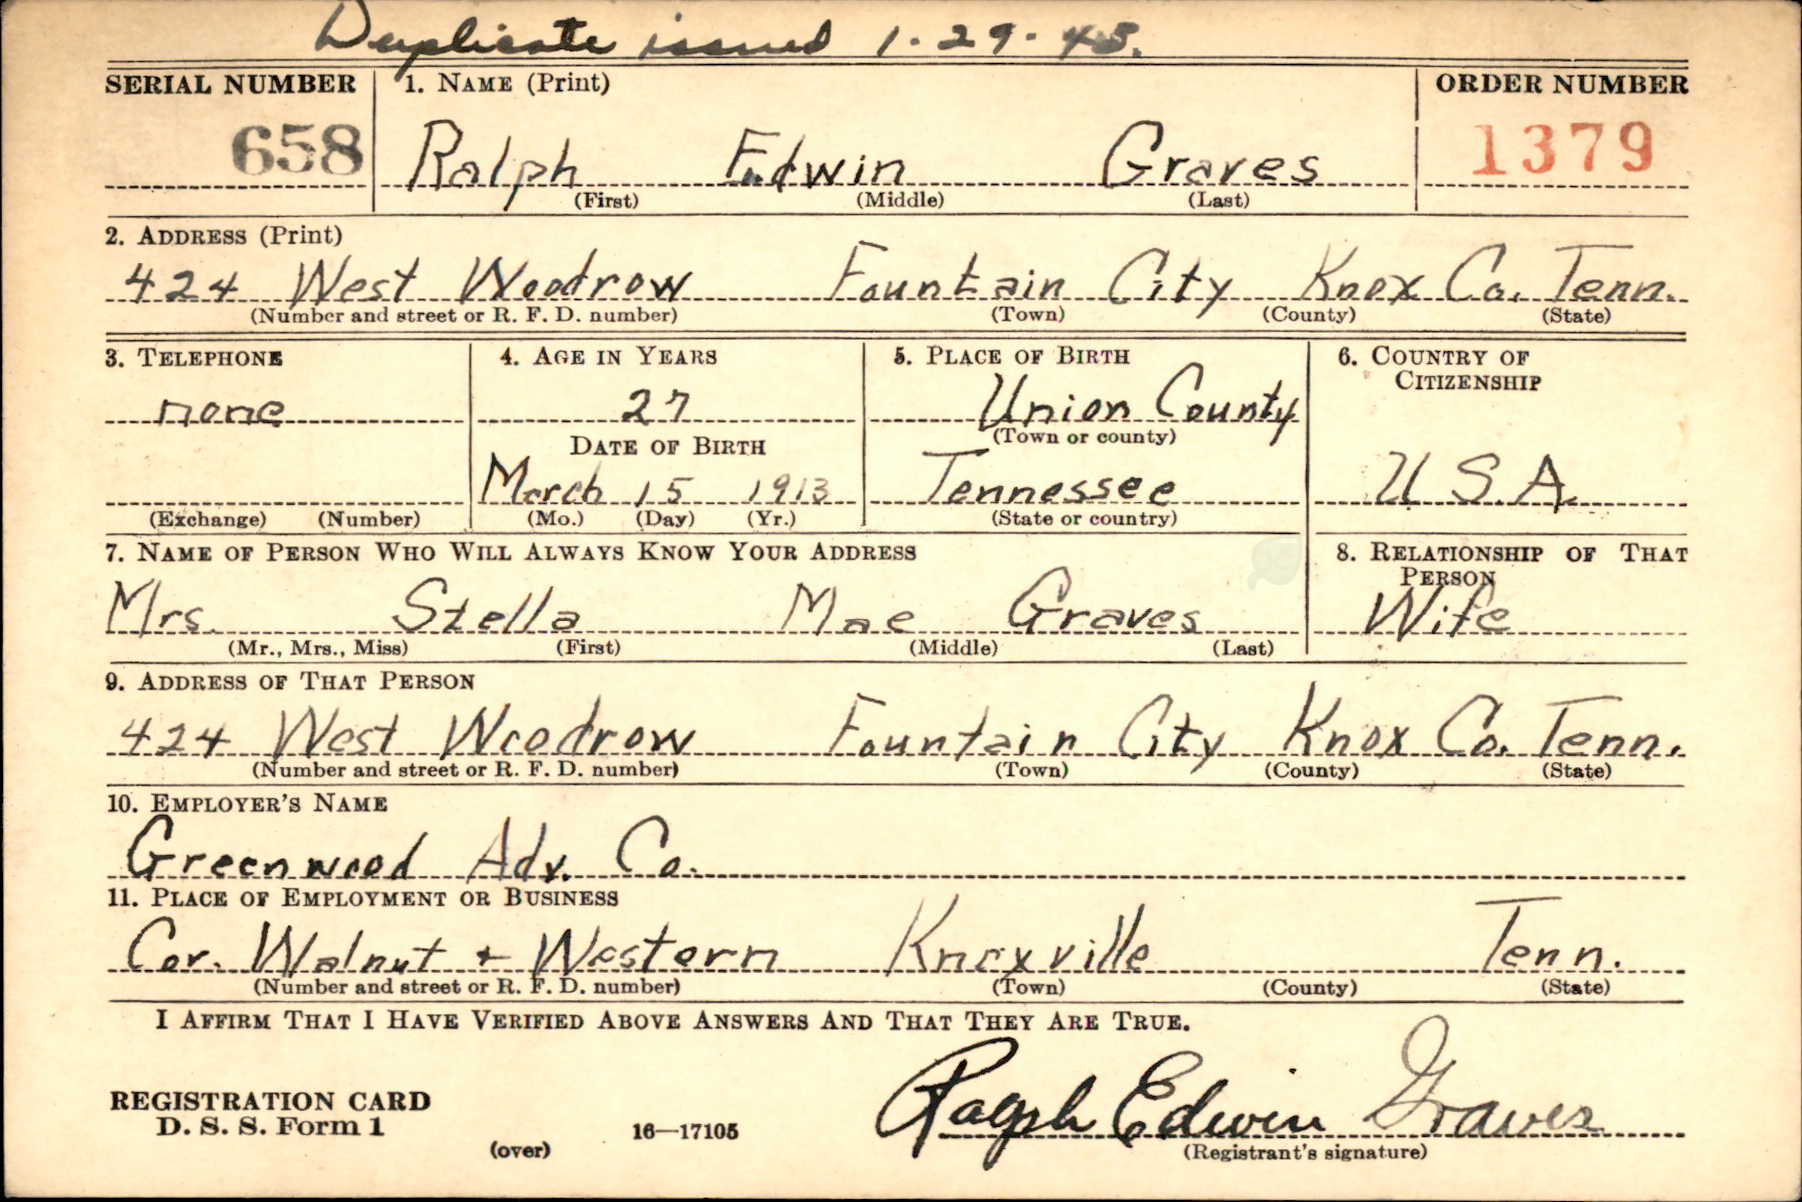 Duplicate issued 1-29-45.
SERIAL NUMBER 1. NAME (Print) ORDER NUMBER
658 Ralph Edwin Graves 1379
(First) (Middle) (Last)
2. ADDRESS (Print)
424 West Woodrow Fountain City Knox Co. Tenn.
(Number and street or R. F. D. number) (Town) (County) (State)
3. TELEPHONE 4. AGE IN YEARS 5. PLACE OF BIRTH 6. COUNTRY OF CITIZENSHIP
none 27 Union County
(Town or county)
DATE OF BIRTH
March 15 1913 Tennessee U.S.A.
(Exchange) (Number) (Mo.) (Day) (Yr.) (State or country)
7. NAME OF PERSON WHO WILL ALWAYS KNOW YOUR ADDRESS 8. RELATIONSHIP OF THAT PERSON
Mrs. Stella Mae Graves Wife
(Mr., Mrs., Miss) (First) (Middle) (Last)
9. ADDRESS OF THAT PERSON
424 West Woodrow Fountain City Knox Co. Tenn.
(Number and street or R. F. D. number) (Town) (County) (State)
10. EMPLOYER'S NAME
Greenwood Adv. Co.
11. PLACE OF EMPLOYMENT OR BUSINESS
Cor. Walnut + Western Knoxville Tenn.
(Number and street or R. F. D. number) (Town) (County) (State)
I AFFIRM THAT I HAVE VERIFIED ABOVE ANSWERS AND THAT THEY ARE TRUE.
REGISTRATION CARD
D. S. S. Form 1 Ralph Edwin Graves
(over) 16—17105 (Registrant's signature)